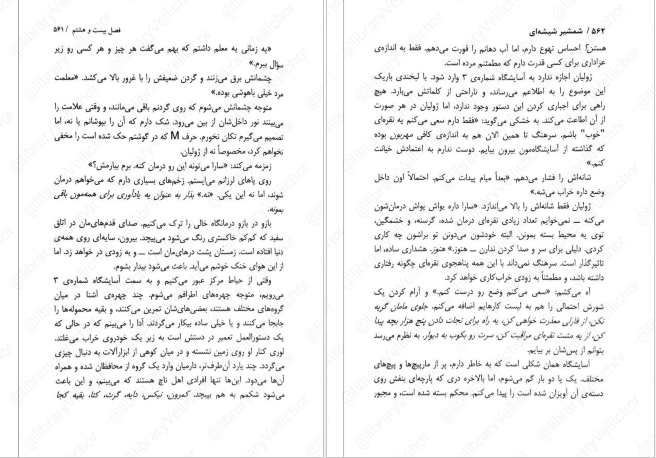 فصل بیست و هشتم / ۵۶۱
«یه زمانی یه معلم داشتم که بهم می‌گفت هر چیز و هر کسی رو زیر
سؤال ببرم.»
چشمانش برق می‌زنند و گردن ضعیفش را با غرور بالا می‌کشد. «معلمت
مرد خیلی باهوشی بوده.»
متوجه چشمانش می‌شوم که روی گردنم باقی می‌مانند، و وقتی علامت را
می‌بینند نور داخل‌شان از بین می‌رود. شک دارم که آن را بپوشانم یا نه، اما
تصمیم می‌گیرم تکان نخورم. حرف M که در گوشتم حک شده است را مخفی
نخواهم کرد، مخصوصاً نه از ژولیان.
زمزمه می‌کند: «سارا می‌تونه این رو درمان کنه. برم بیارمش؟»
روی پاهای لرزانم می‌ایستم. زخم‌های بسیاری دارم که می‌خواهم درمان
شوند، اما نه این یکی. «نه.» بذار به عنوان یه یادآوری برای همه‌مون باقی
بمونه.
بازو در بازو درمانگاه خالی را ترک می‌کنیم. صدای قدم‌های‌مان در اتاق
سفید که کم‌کم خاکستری رنگ می‌شود می‌پیچد. بیرون، سایه‌ای روی همه‌ی
دنیا افتاده است. زمستان پشت درهای‌مان است ــ و به زودی در خواهد زد. اما
از این هوای خنک خوشم می‌آید. باعث می‌شود بیدار شوم.
وقتی از حیاط مرکز عبور می‌کنیم و به سمت آسایشگاه شماره‌ی ۳
می‌رویم، متوجه چهره‌های اطرافم می‌شوم. چند چهره‌ی آشنا در میان
گروه‌های مختلف هستند، بعضی‌های‌شان تمرین می‌کنند، و بقیه محموله‌ها را
جابجا می‌کنند و یا خیلی ساده بیکار می‌گردند. آدا را می‌بینم که در حالی که
یک دستورالعمل تعمیر در دستش است به زیر یک خودروی خراب می‌غلتد.
لوری کنار او روی زمین نشسته و در میان کوهی از ابزارآلات به دنبال چیزی
می‌گردد. چند یارد آن‌طرف‌تر، دارمیان وارد یک گروه از محافظان شده و همراه
آن‌ها می‌دود. این‌ها تنها افرادی اهل ناچ هستند که می‌بینم، و این باعث
می‌شود شکمم به هم بپیچد. کمرون، نیکس، دایه، گرث، کتا، بقیه کجا
۵۶۲ / شمشیر شیشه‌ای
هستن؟ احساس تهوع دارم، اما آب دهانم را قورت می‌دهم. فقط به اندازه‌ی
عزاداری برای کسی قدرت دارم که مطمئنم مرده است.
ژولیان اجازه ندارد به آسایشگاه شماره‌ی ۳ وارد شود. با لبخندی باریک
این موضوع را به اطلاعم می‌رساند، و ناراحتی از کلماتش می‌بارد. هیچ
راهی برای اجباری کردن این دستور وجود ندارد، اما ژولیان در هر صورت
از آن اطاعت می‌کند. به خشکی می‌گوید: «فقط دارم سعی می‌کنم یه نقره‌ای
"خوب" باشم. سرهنگ تا همین الان هم به اندازه‌ی کافی مهربون بوده
که گذاشته از آسایشگاه‌مون بیرون بیایم. دوست ندارم به اعتمادش خیانت
کنم.»
شانه‌اش را فشار می‌دهم. «بعداً میام پیدات می‌کنم. احتمالاً اون داخل
وضع داره خراب می‌شه.»
ژولیان فقط شانه‌اش را بالا می‌اندازد. «سارا داره یواش یواش درمان‌شون
می‌کنه ــ نمی‌خوایم تعداد زیادی نقره‌ای درمان شده، گرسنه، و خشمگین،
توی یه محیط بسته بمونن. البته خودشون می‌دونن تو براشون چه کاری
کردی. دلیلی برای سر و صدا کردن ندارن ــ هنوز.» هنوز. هشداری ساده، اما
تاثیرگذار است. سرهنگ نمی‌داند با این همه پناهجوی نقره‌ای چگونه رفتاری
داشته باشد، و مطمئناً به زودی خراب‌کاری خواهد کرد.
آه می‌کشم: «سعی می‌کنم وضع رو درست کنم.» و آرام کردن یک
شورش احتمالی را هم به لیست کارهایم اضافه می‌کنم. جلوی مامان گریه
نکن، از فارلی معذرت خواهی کن، یه راه برای نجات دادن پنج هزار بچه پیدا
کن، از یه مشت نقره‌ای مراقبت کن، سرت رو بکوب به دیوار. به نظرم می‌رسد
بتوانم از پس‌شان بر بیایم.
آسایشگاه همان شکلی است که به خاطر دارم، پر از مارپیچ‌ها و پیچ‌های
مختلف. یک یا دو بار گم می‌شوم، اما بالاخره دری که پارچه‌ای بنفش روی
دسته‌ی آن آویزان شده است را پیدا می‌کنم. محکم بسته شده است، و مجبور
@libraryVellichor